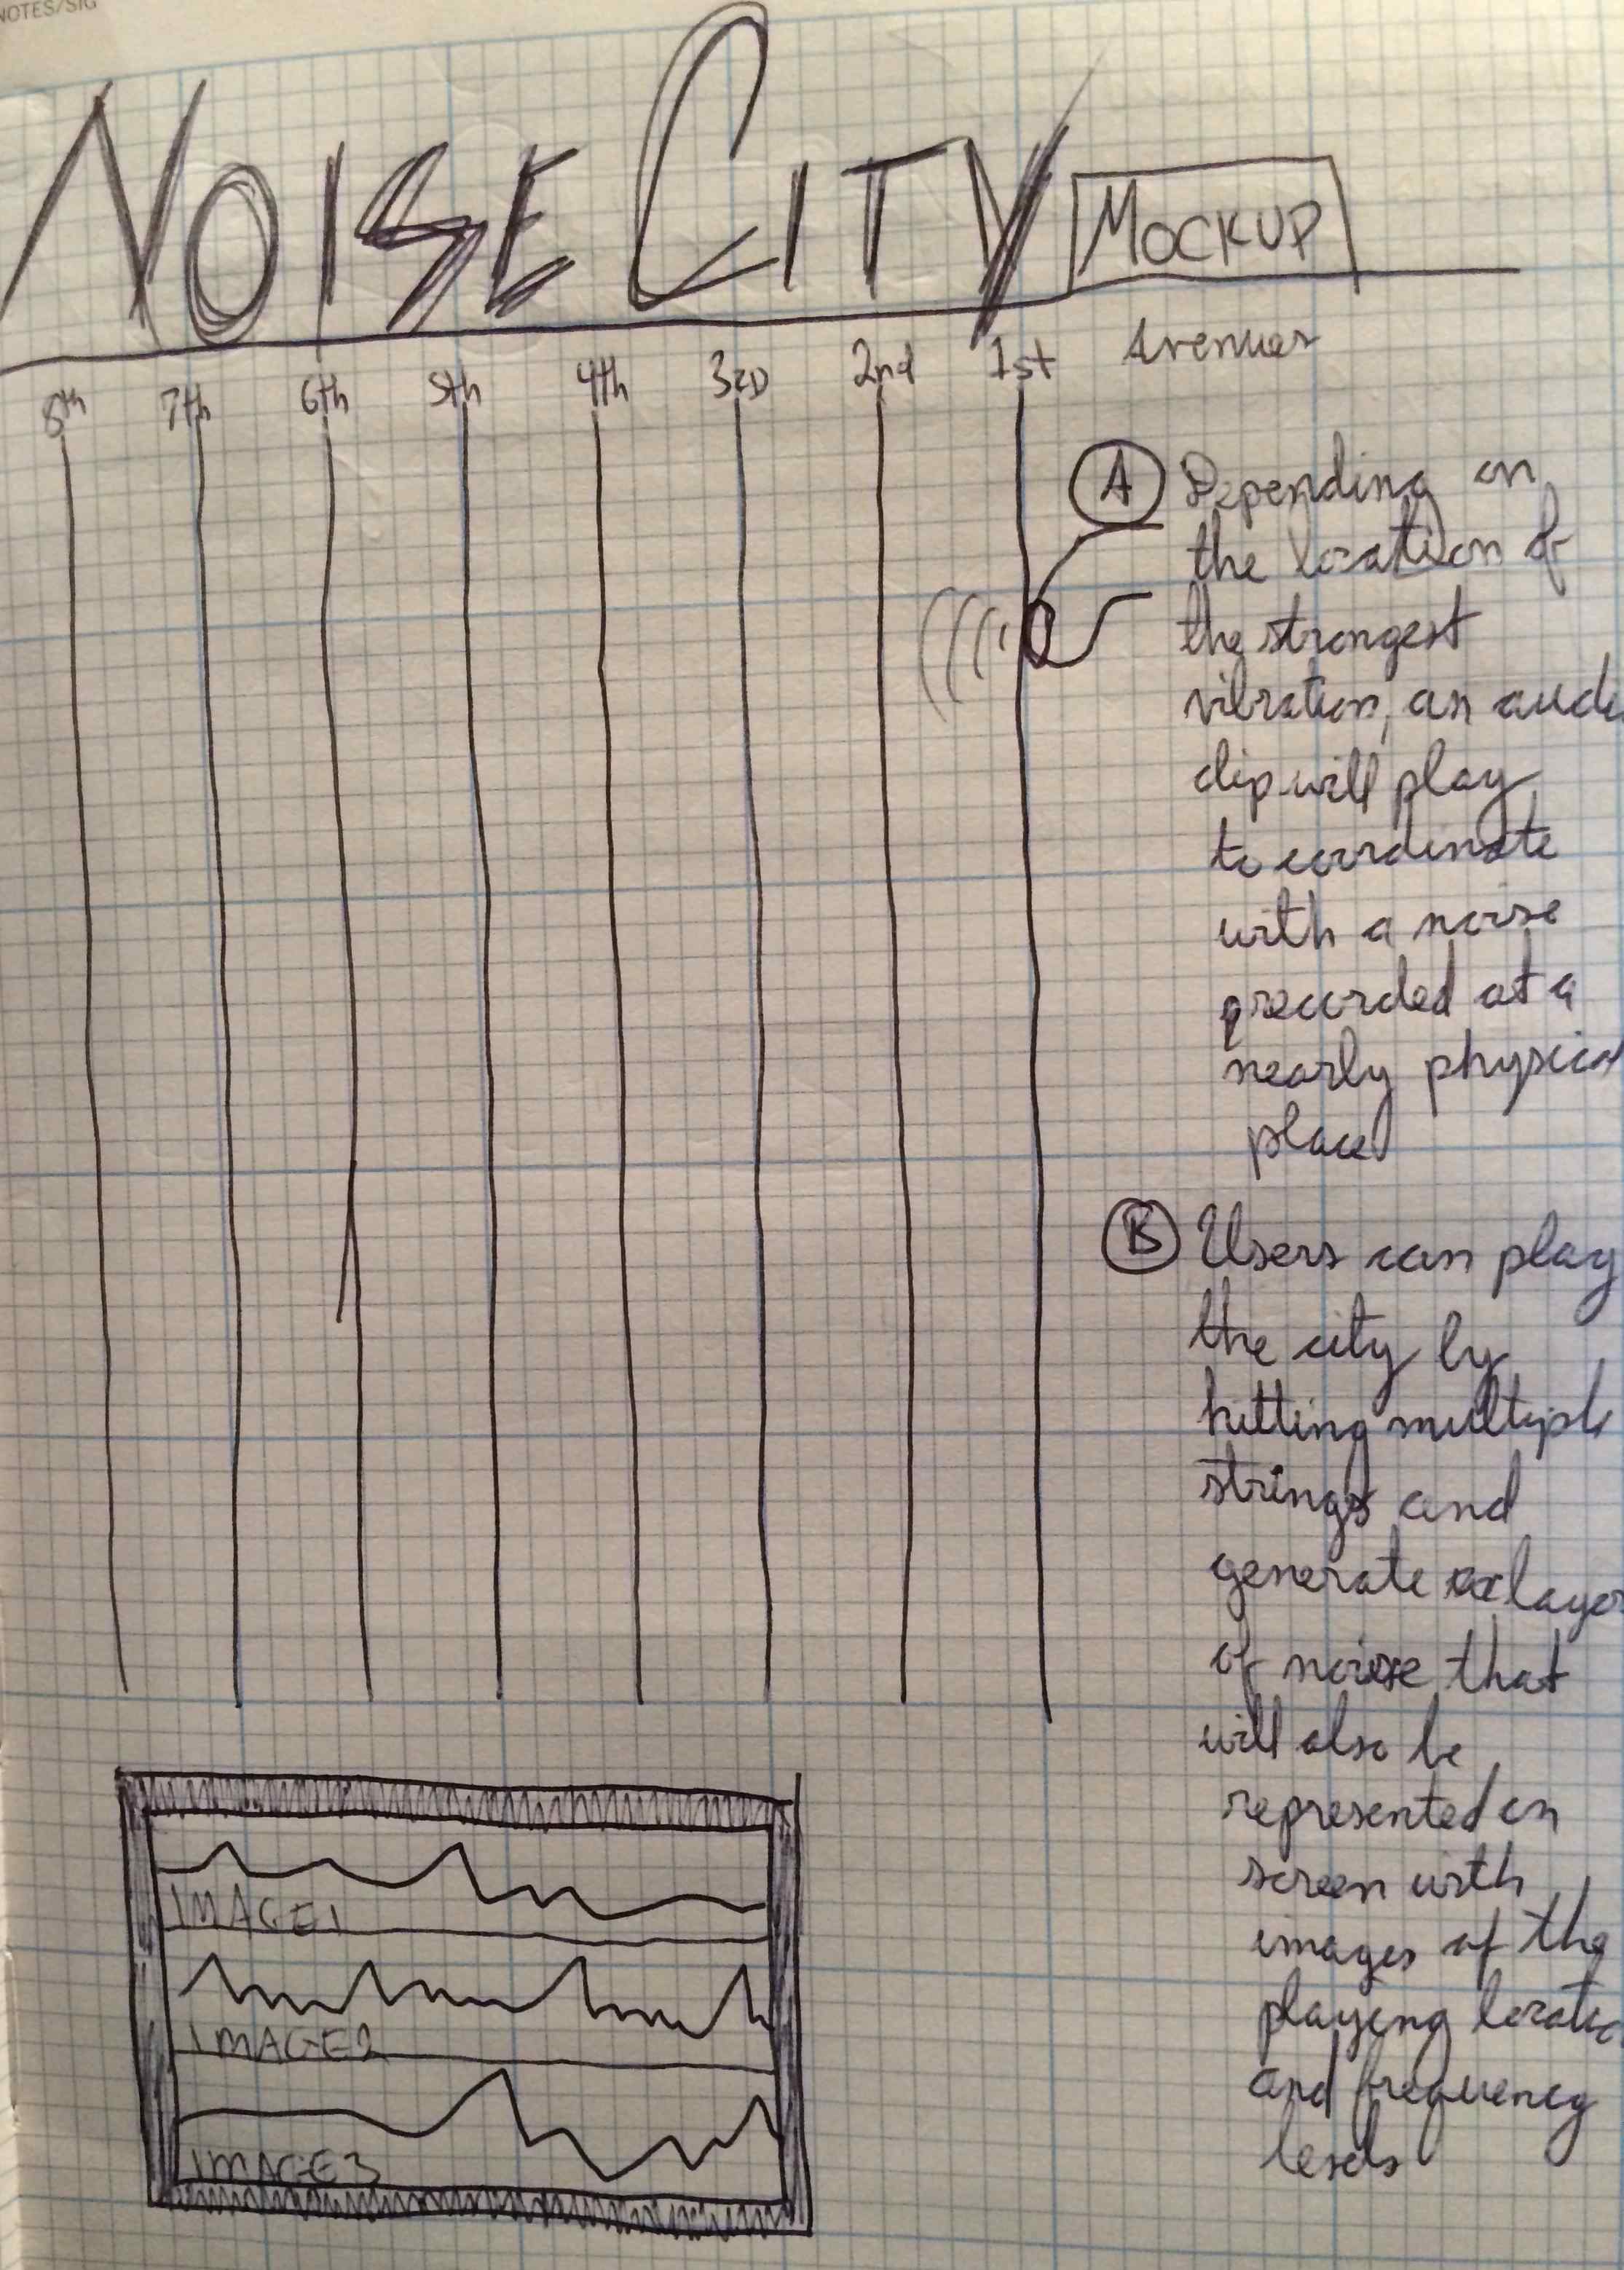 NOTES/SIG
NOISE CITY MOCKUP
8th 7th 6th 5th 4th 3RD 2nd 1st Avenues
A Depending on
the location of
the strongest
vibration, an audi
clip will play
to coordinate
with a noise
precorded at a
nearly physical
place
B Users can play
the city by
hitting multiple
strings and
generate a layer
of noise that
will also be
represented on
screen with
images of the
playing locatio
and frequency
levels
IMAGE1
IMAGE2
IMAGE3